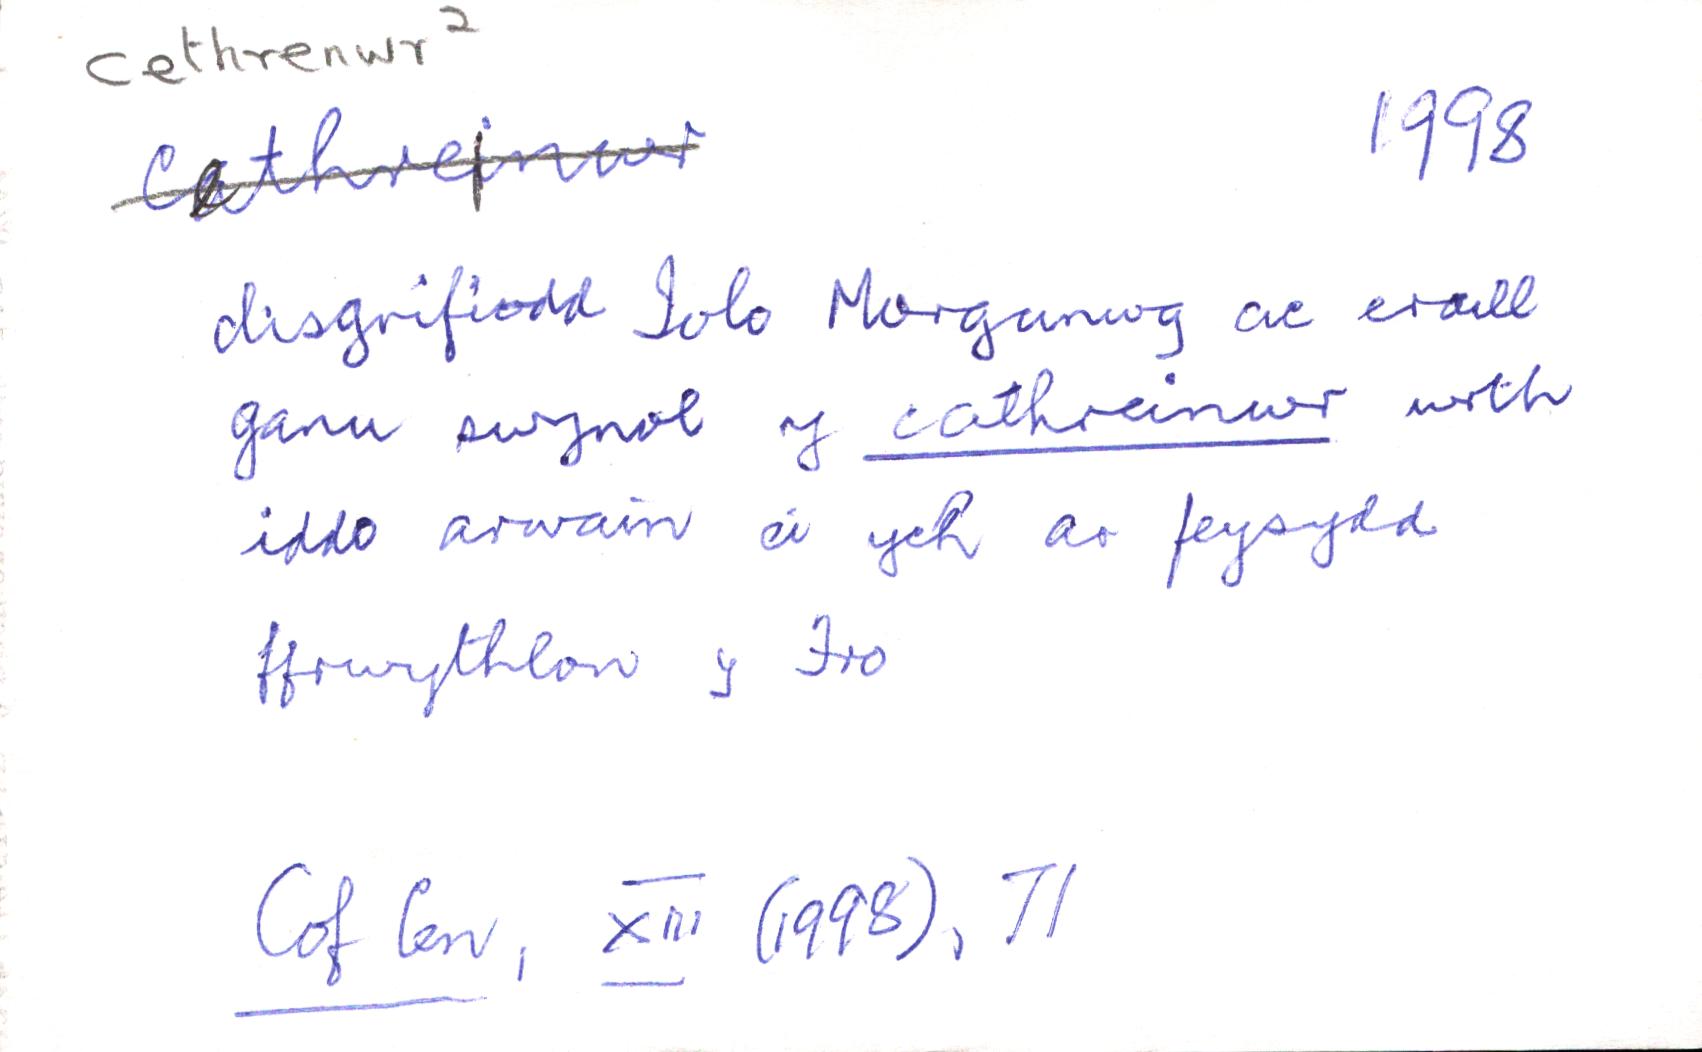 cethrenwr²
cathreinwr
1998
disgrifiodd Iolo Morganwg ac eraill
ganu swynol y cathreinwr wrth
iddo arwain ei ych ar feysydd
ffrwythlon y Fro
Cof Cen, XIII (1998), 71